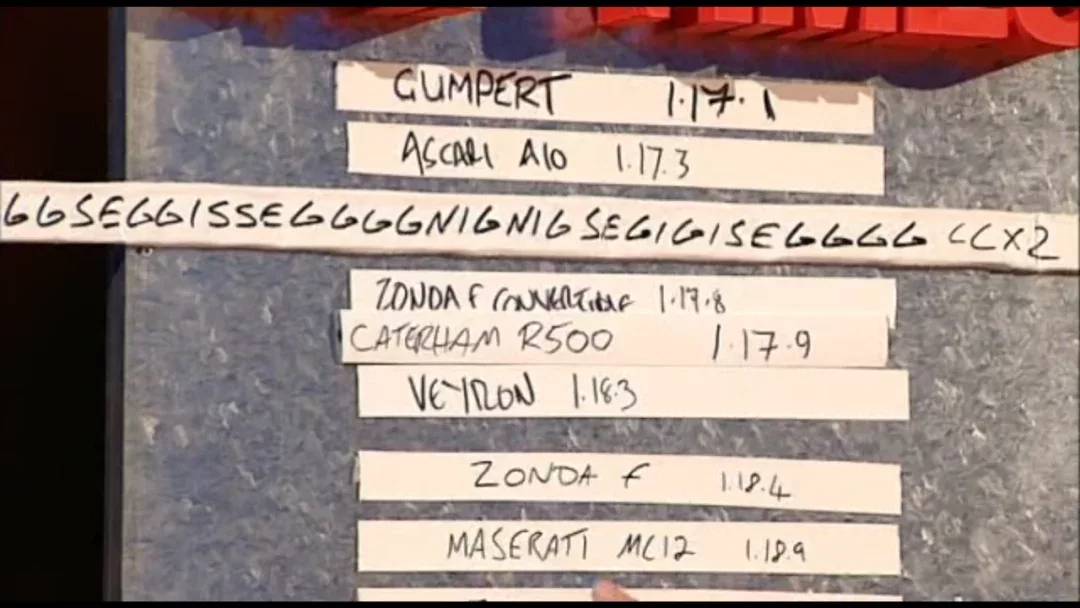 GUMPERT 1.17.1
ASCARI A10 1.17.3
GGSEGGISSEGGGGNIGNIG SEGIGISEGGGG CCX2
ZONDA F CONVERTIBLE 1.17.8
CATERHAM R500 1.17.9
VEYRON 1.18.3
ZONDA F 1.18.4
MASERATI MC12 1.18.9